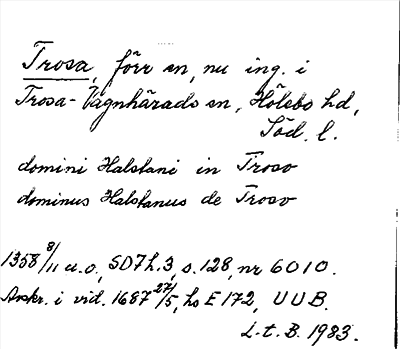 Trosa, förr sn, nu ing. i
Trosa-Vagnhärads sn, Hölebo hd,
Söd. l.
domini Halstani in Troso
dominus Halstanus de Troso
1358 8/11 u.o., SD7h.3, s.128, nr 6010.
Avskr. i vid. 1687 27/5, hs E 172, UUB.
L.t.B. 1983.